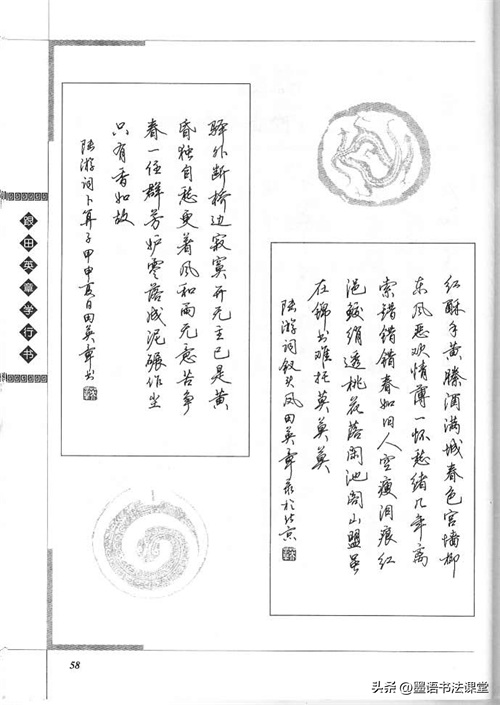 跟田英章学行书
红酥手黄縢酒满城春色宫墙柳
东风恶欢情薄一怀愁绪几年离
索错错错春如旧人空瘦泪痕红
浥鲛绡透桃花落闲池阁山盟虽
在锦书难托莫莫莫
陆游词钗头凤田英章录於北京
驿外断桥边寂寞开无主已是黄
昏独自愁更着风和雨无意苦争
春一任群芳妒零落成泥碾作尘
只有香如故
陆游词卜算子甲申夏日田英章书
58
头条@墨语书法课堂